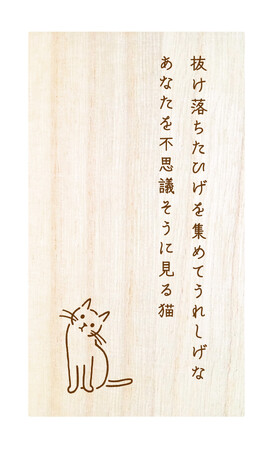 抜け落ちたひげを集めてうれしげな
あなたを不思議そうに見る猫